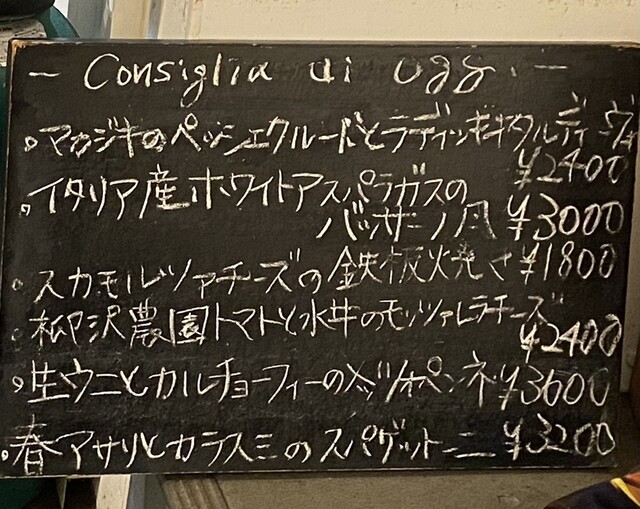 — Consiglia di oggi. —
。マカジキのペッシェクルードとラディッキオタルディーヴォ
¥2400
。イタリア産ホワイトアスパラガスの
バッサーノ風 ¥3000
。スカモルツァチーズの鉄板焼き ¥1800
。柳沢農園トマトと水牛のモッツァレラチーズ
¥2400
。生ウニとカルチョーフィーの ¥3600
。春アサリとカラスミのスパゲットーニ ¥3200